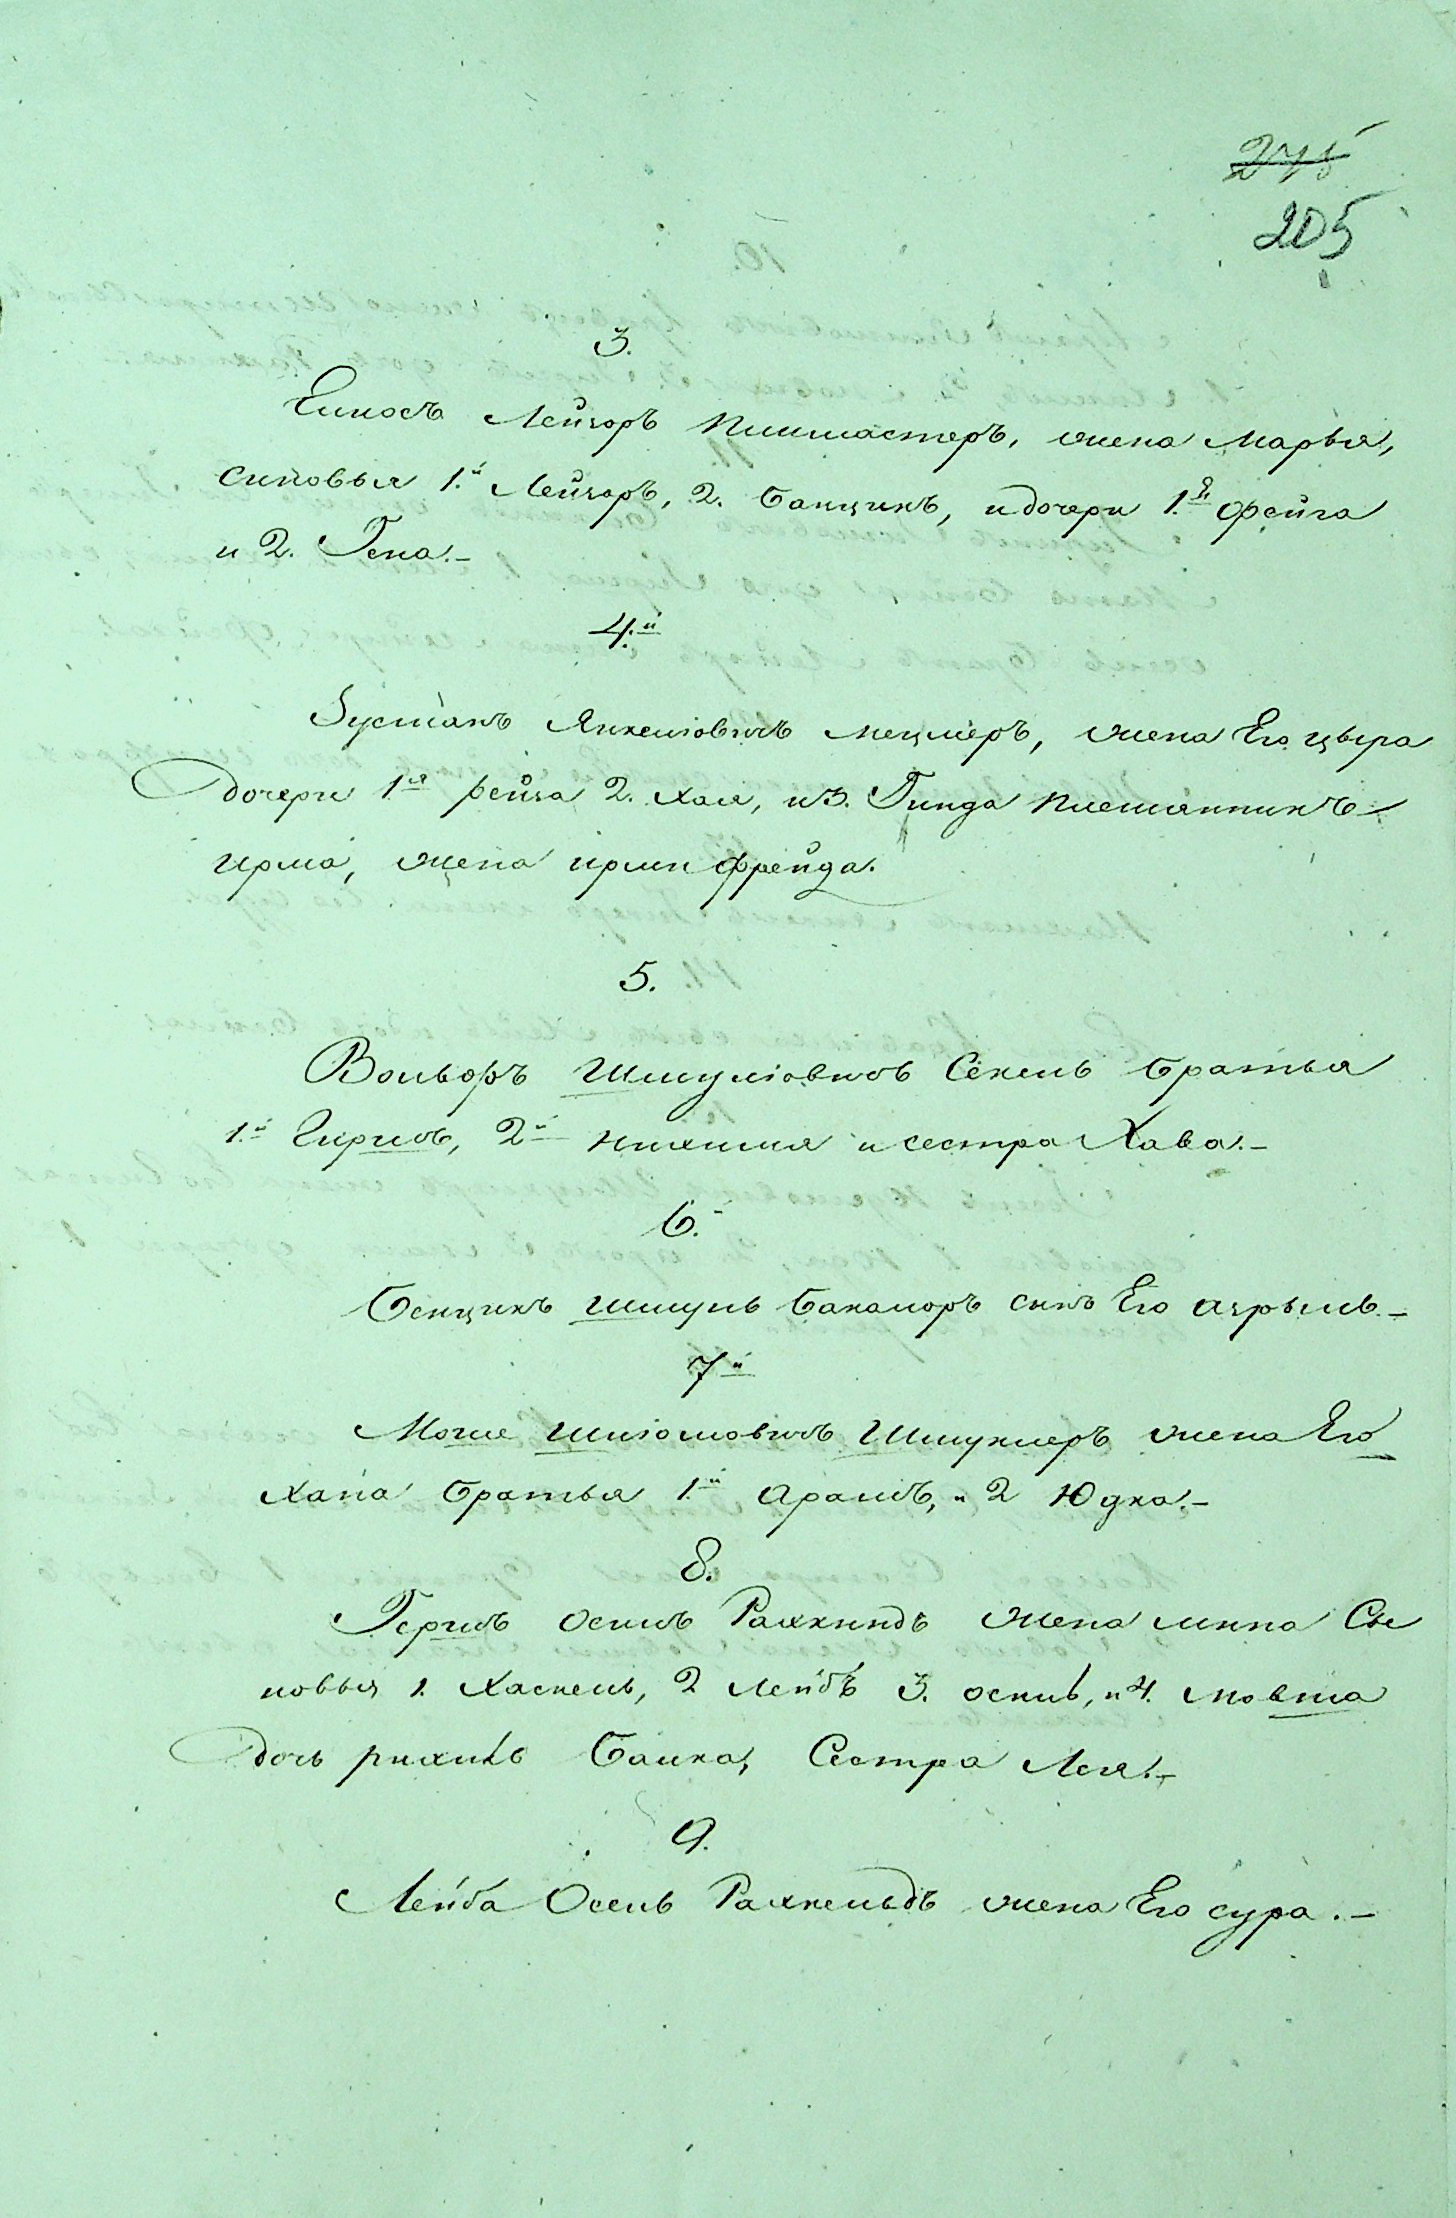 275
205
3.
Еиносъ Лейзоръ Пинмастеръ, жена Марья,
синовья 1.й Лейзоръ, 2. Банцинъ, и дочери 1.я Фейга
и 2. Гена.-
4.й
Зусманъ Янкеліовичъ Мецмеръ, жена Его Цыра
дочери 1я Рейза 2. Хая, и 3. Гинда племянникъ
Ирма, жена ирми Фрейда.
5.
Вольфъ Шмуліовичъ Секель братья
1.й Гиршъ, 2й Нихимя и сестра Хава.-
6.й
Бенцинъ Шмуль Бакаморъ синъ Его Азрыль.-
7й
Моше Шліомовичъ Шмуклеръ жена Его
Хана братья 1.й Арамъ, и 2 Юдка.-
8.
Гершъ Осипъ Рамкиндъ жена Мина Сы
новья 1. Хаскель, 2 Лейбъ 3. Осипъ, и 4. Мовша
дочь Бамка, Сестра Лея.-
9.
Лейба Осепъ Рамкельдъ жена Его Сура.-